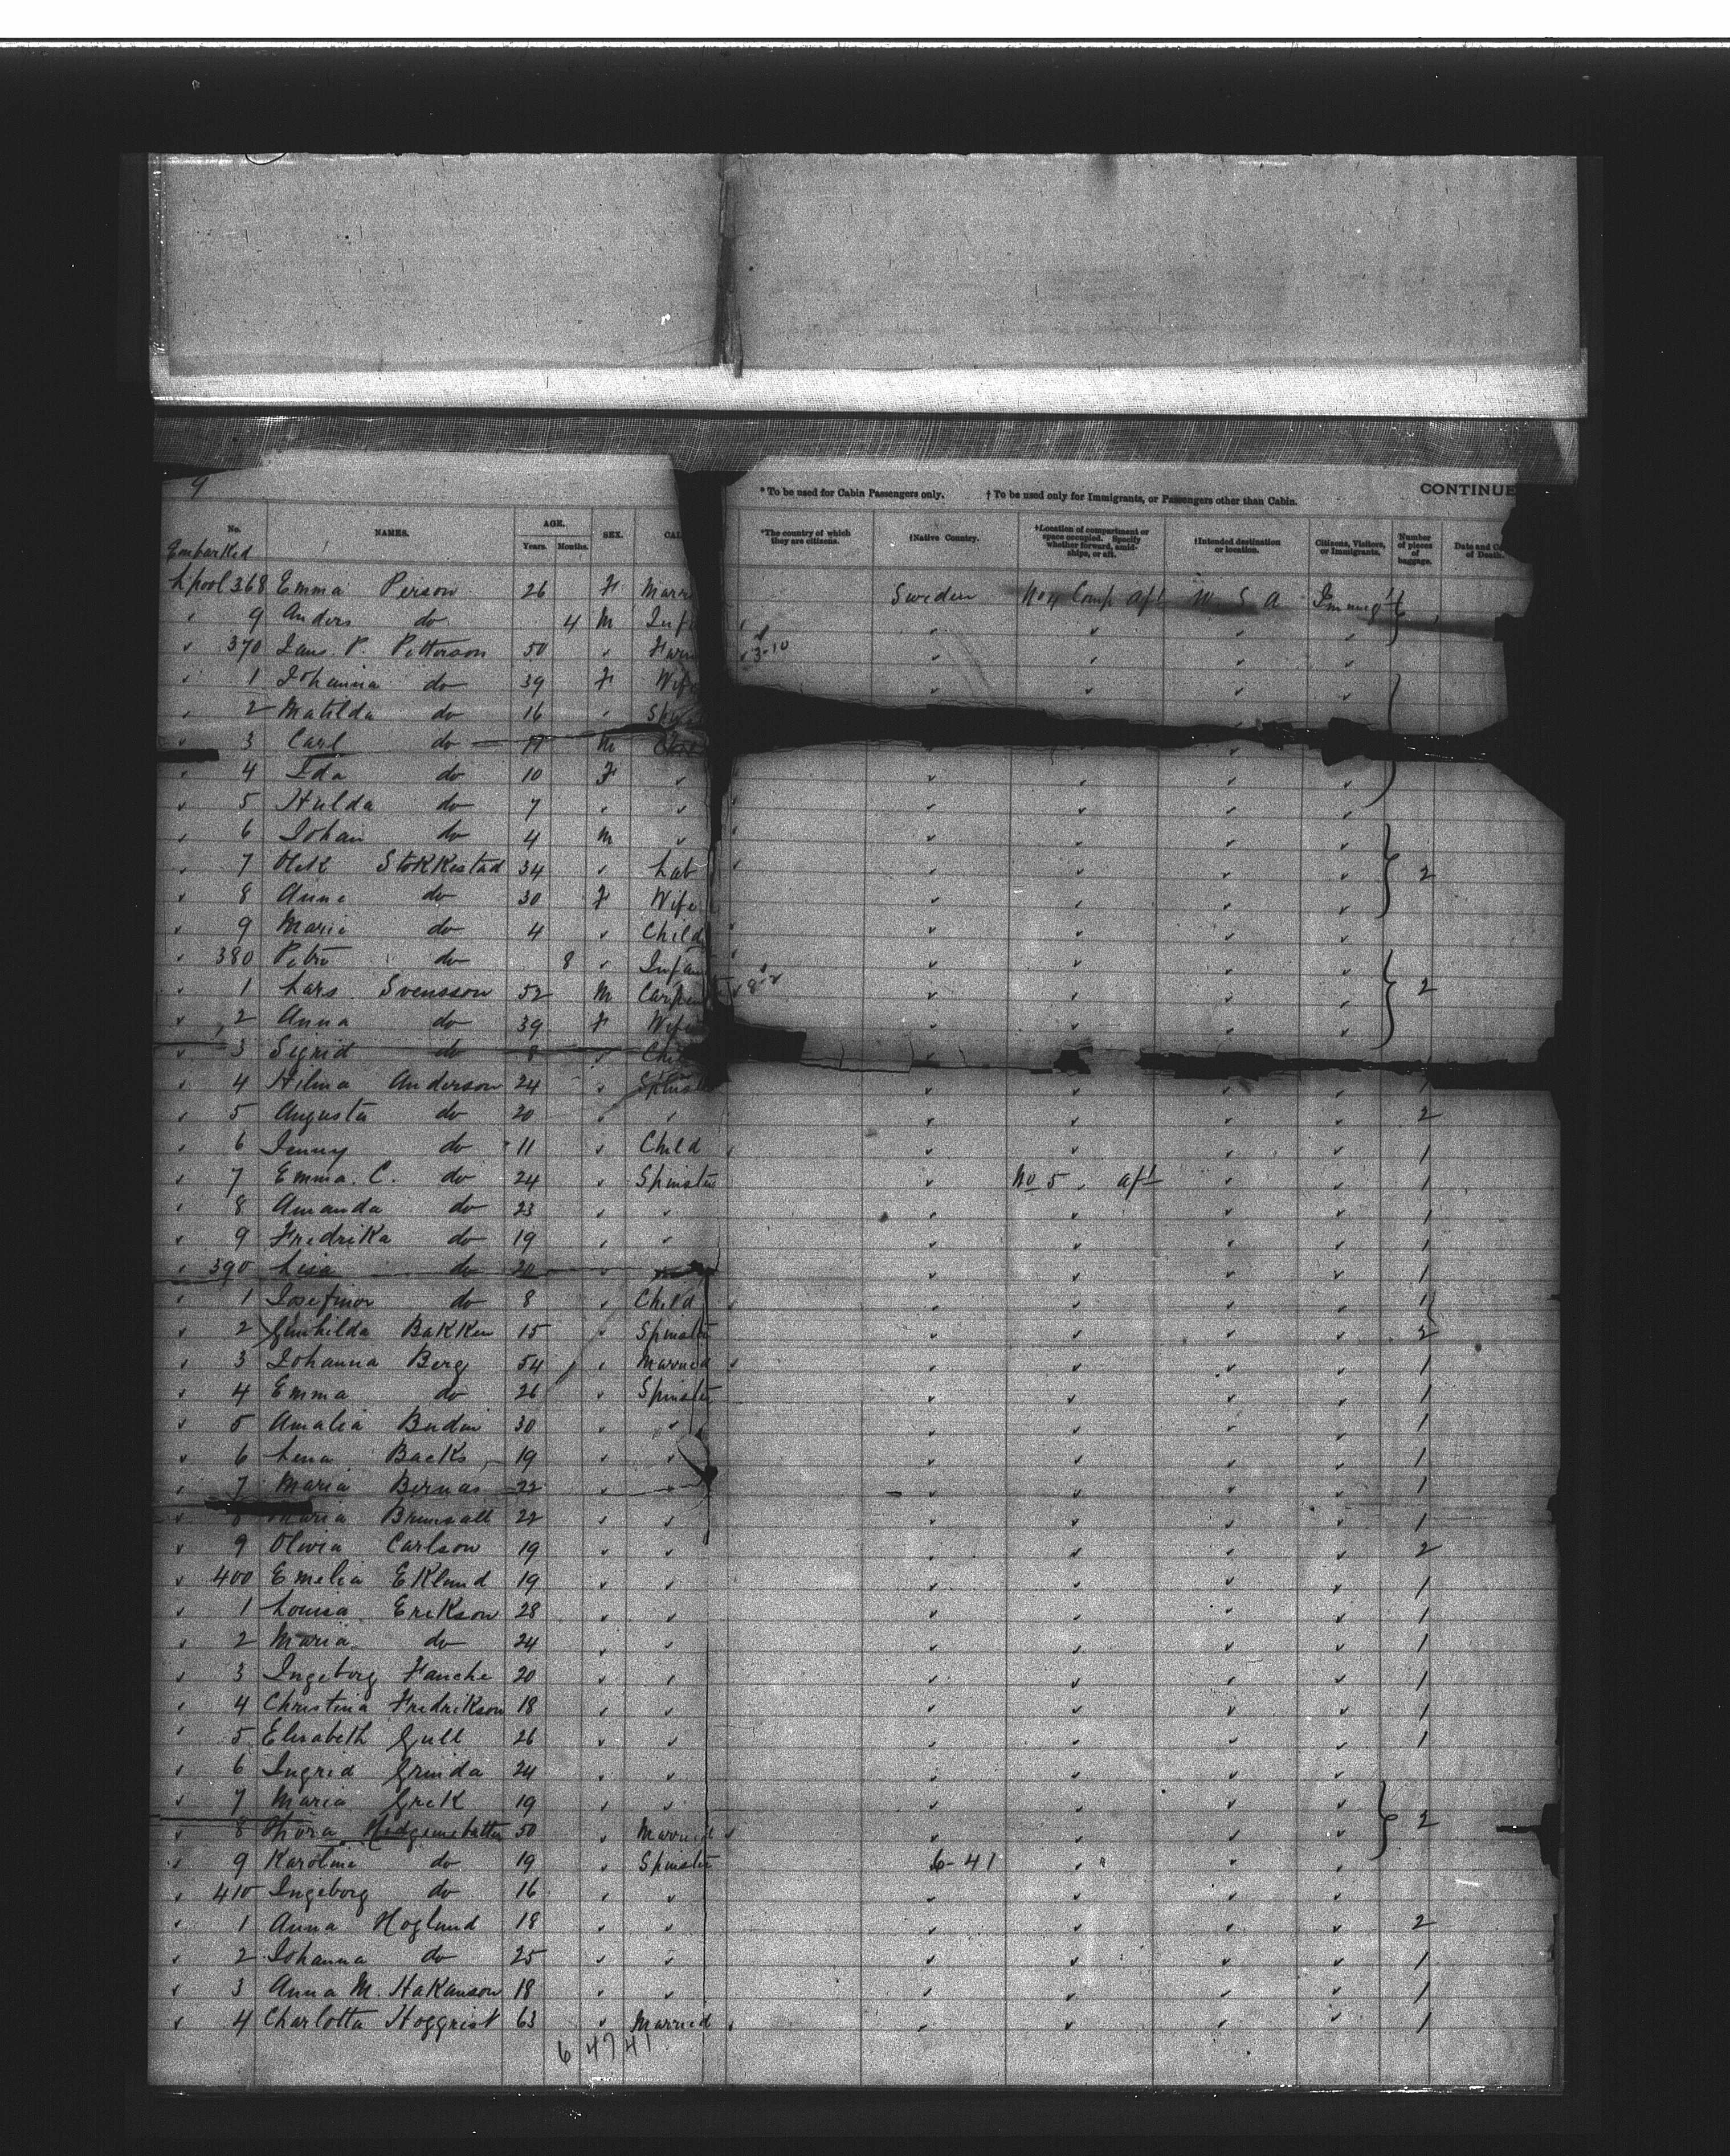 9
* To be used for Cabin Passengers only. † To be used only for Immigrants, or Passengers other than Cabin. CONTINUE
No. NAMES. AGE. Years. Months. SEX. CAL *The country of which they are citizens. †Native Country. †Location of compartment or space occupied. Specify whether forward, amidships, or aft. †Intended destination or location. Citizens, Visitors, or Immigrants. Number of pieces of baggage. Date and C of Death
Embarked
Lpool 368 Emma Person 26 F Marr Sweden No 4 Comp aft U S A Immigt
" 9 Anders do 4 M Inf " " " "
" 370 Jans. P. Petterson 50 " Farm 3-10 " " " "
" 1 Johanna do 39 F Wife " " " "
" 2 Matilda do 16 " Spin
" 3 Carl do 11 M
" 4 Ida do 10 F " " " " "
" 5 Hulda do 7 " " " " " "
" 6 Johan do 4 M " " " " "
" 7 Stokkestad 34 " Lab " " " " 2
" 8 Anne do 30 F Wife " " " "
" 9 Marie do 4 " Child " " " "
" 380 Petro do 8 " Infan " " " "
" 1 Lars Svensson 52 M Carpen " " " " 2
" 2 Anna do 39 F Wife " " " "
" 3 Sigrid do 8 " Chil
" 4 Hilma Anderson 24 " Spinst " " " "
" 5 Augusta do 20 " " " " " " 2
" 6 Jenny do 11 " Child " " " " 1
" 7 Emma. C. do 24 " Spinster " No 5 aft " " 1
" 8 Amanda do 23 " " " " " " 1
" 9 Fredrika do 19 " " " " " " 1
" 390 Lisa do 20 " " " " " 1
" 1 Josefina do 8 " Child " " " " 1
" 2 Gunhilda Bakken 15 " Spinster " " " " 2
" 3 Johanna Berg 54 " Married " " " " 1
" 4 Emma do 26 " Spinster " " " " 1
" 5 Amalia 30 " " " " " " 1
" 6 Lena Backs 19 " " " " " " 1
" 7 Maria Bernas 22 " " " " " " 1
" 8 Maria 22 " " " " " " 1
" 9 Olivia Carlson 19 " " " " " " 2
" 400 Emelia Eklund 19 " " " " " " 1
" 1 Louisa Erikson 28 " " " " " " 1
" 2 Maria do 24 " " " " " " 1
" 3 Ingeborg Fanche 20 " " " " " " 1
" 4 Christina Fredrikson 18 " " " " " " 1
" 5 Elisabeth Gull 26 " " " " " " 1
" 6 Ingrid Grinda 24 " " " " " "
" 7 Maria Grek 19 " " " " " "
" 8 Thora 50 " Married " " " " 2
" 9 Karoline do 19 " Spinster 6-41 " " "
" 410 Ingeborg do 16 " " " " " "
" 1 Anna Hoglund 18 " " " " " " 2
" 2 Johanna do 25 " " " " " " 1
" 3 Anna M. Hakanson 18 " " " " " " 1
" 4 Charlotta Hogqrist 63 " Married " " " " 1
6 47 41